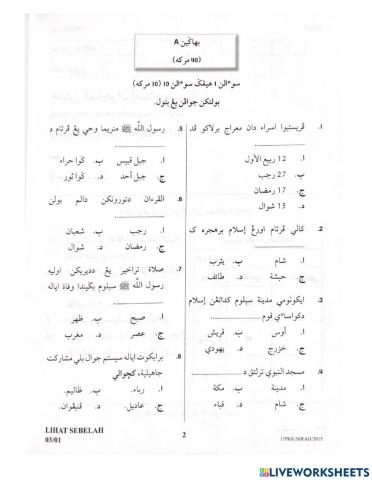 بهاݢين A
(٤٥ مركه)
سوءالن ١ هيڠݢ سوءالن ١٥ (١٥ مركه)
بولتكن جواڤن يڠ بتول.
١. ڤريستيوا اسراء دان معراج برلاكو ڤد
ا. 12 ربيع الأول
ب. 27 رجب
ج. 17 رمضان
د. 15 شوال
٢. كالي ڤرتام اورڠ إسلام برهجره ك
ا. شام ب. يثرب
ج. حبشة د. طائف
٣. ايكونومي مدينة سبلوم كداتڠن إسلام
دكواساءي قوم
ا. أوس ب. قريش
ج. خزرج د. يهودي
٤. مسجد النبوي ترلتق د
ا. مدينة ب. مكة
ج. شام د. قباء
٥. رسول الله ﷺ منريما وحي يڠ ڤرتام د
ا. جبل قبيس ب. ݢوا حراء
ج. جبل أحد د. ݢوا ثور
٦. القرءان دتورونكن دالم بولن
ا. رجب ب. شعبان
ج. رمضان د. شوال
٧. صلاة تراخير يڠ ددیريكن اوليه
رسول الله ﷺ سبلوم بݢيندا وفاة اياله
ا. صبح ب. ظهر
ج. عصر د. مغرب
٨. برايكوت اياله سيستم جوال بلي مشاركت
جاهيلية، كچوالي
ا. رباء. ب. ظاليم.
ج. عاديل. د. ڤنيڤوان.
LIHAT SEBELAH
03/01
2
UPKK/SIRAH/2015
LIVEWORKSHEETS